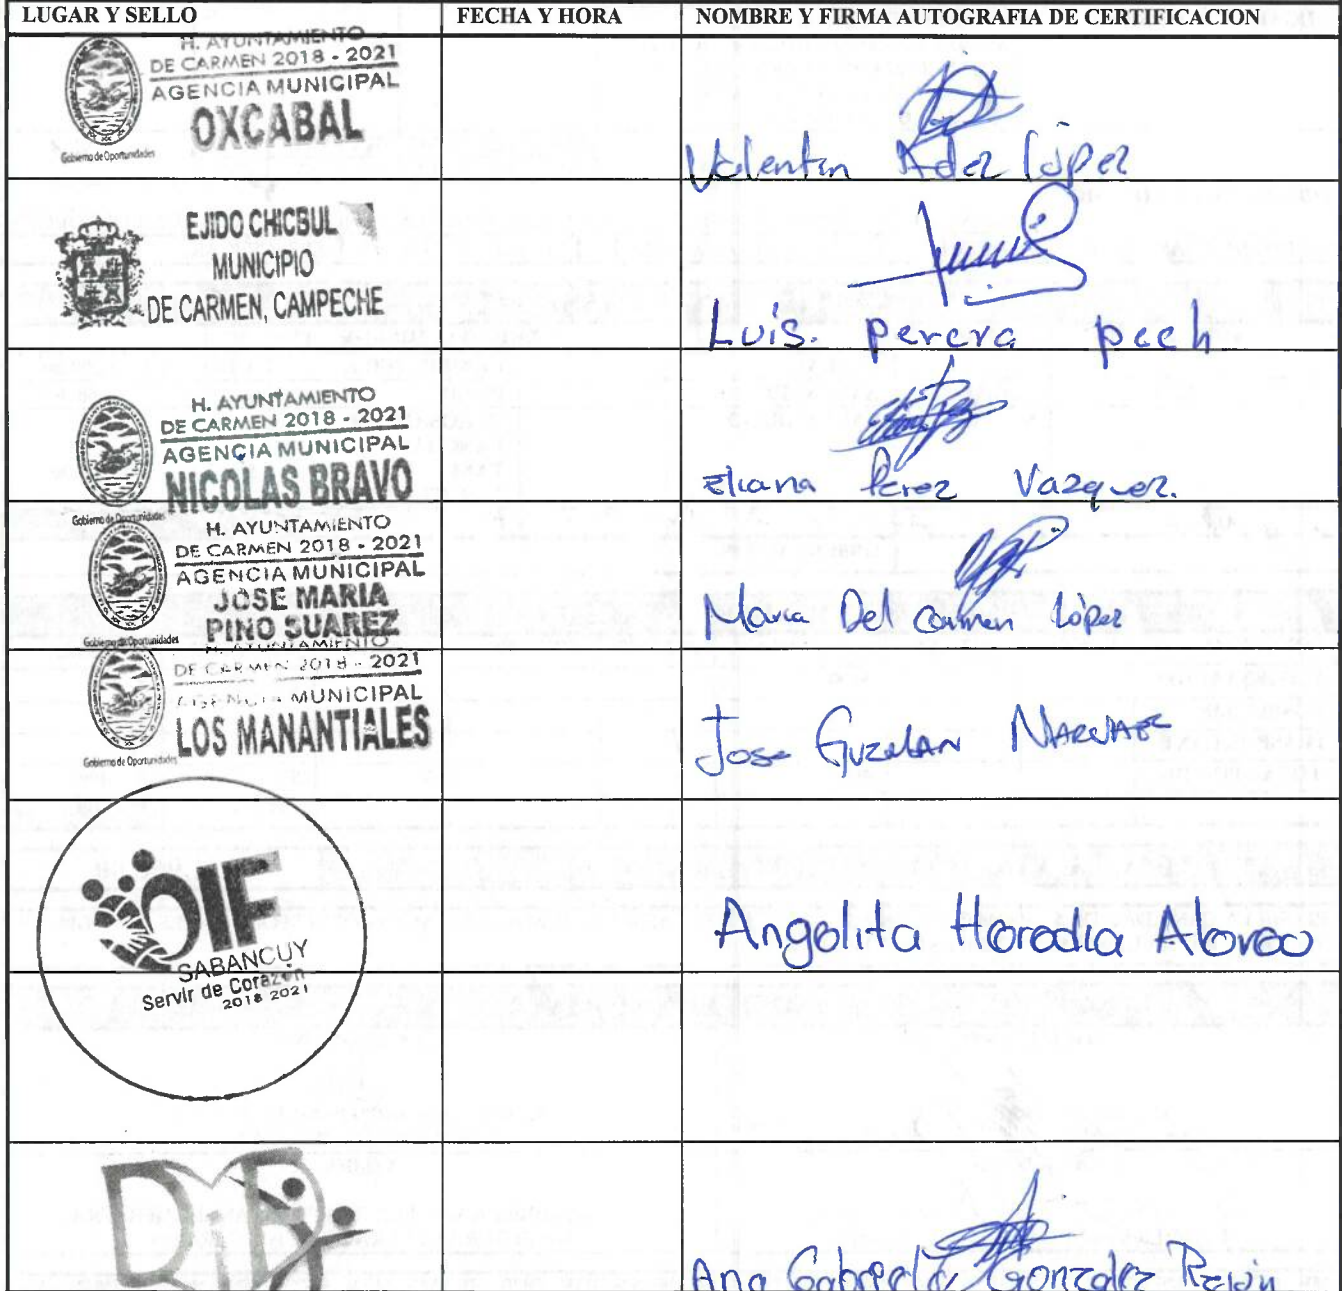 LUGAR Y SELLO
FECHA Y HORA
NOMBRE Y FIRMA AUTOGRAFIA DE CERTIFICACION
H. AYUNTAMIENTO
DE CARMEN 2018 - 2021
AGENCIA MUNICIPAL
OXCABAL
Gobierno de Oportunidades
Valentin López
EJIDO CHICBUL
MUNICIPIO
DE CARMEN, CAMPECHE
Luis. perera peeh
H. AYUNTAMIENTO
DE CARMEN 2018 - 2021
AGENCIA MUNICIPAL
NICOLAS BRAVO
Gobierno de Oportunidades
Eliana Perez Vazquez.
H. AYUNTAMIENTO
DE CARMEN 2018 - 2021
AGENCIA MUNICIPAL
JOSE MARIA
PINO SUAREZ
Gobierno de Oportunidades
Maria Del carmen López
H. AYUNTAMIENTO
DE CARMEN 2018 - 2021
AGENCIA MUNICIPAL
LOS MANANTIALES
Gobierno de Oportunidades
Jose Guzman
DIF
SABANCUY
Servir de Corazón
2018 2021
Angelita Heredia
DIF
Ana Gabriela Gonzalez Rejón